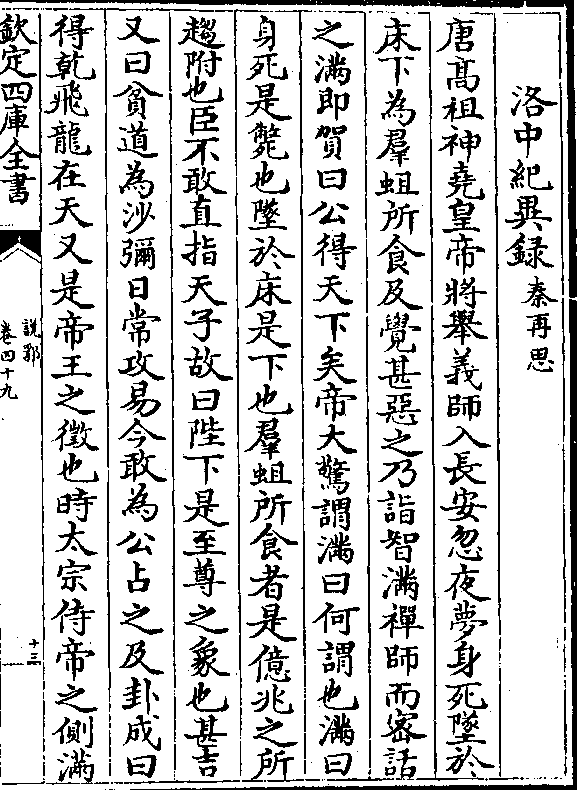 洛中紀異録 秦再思
唐髙祖神堯皇帝將舉義師入長安忽夜夢身死墜於
床下為羣蛆所食及覺甚惡之乃詣智滿禪師而密話
之滿即賀曰公得天下矣帝大驚謂滿曰何謂也滿曰
身死是斃也墜於床是下也羣蛆所食者是億兆之所
趨附也臣不敢直指天子故曰陛下是至尊之象也甚吉
又曰貧道為沙彌日常攻易今敢為公占之及卦成曰
得乾飛龍在天又是帝王之徵也時太宗侍帝之側滿
欽定四庫全書
說郛
卷四十九
十三